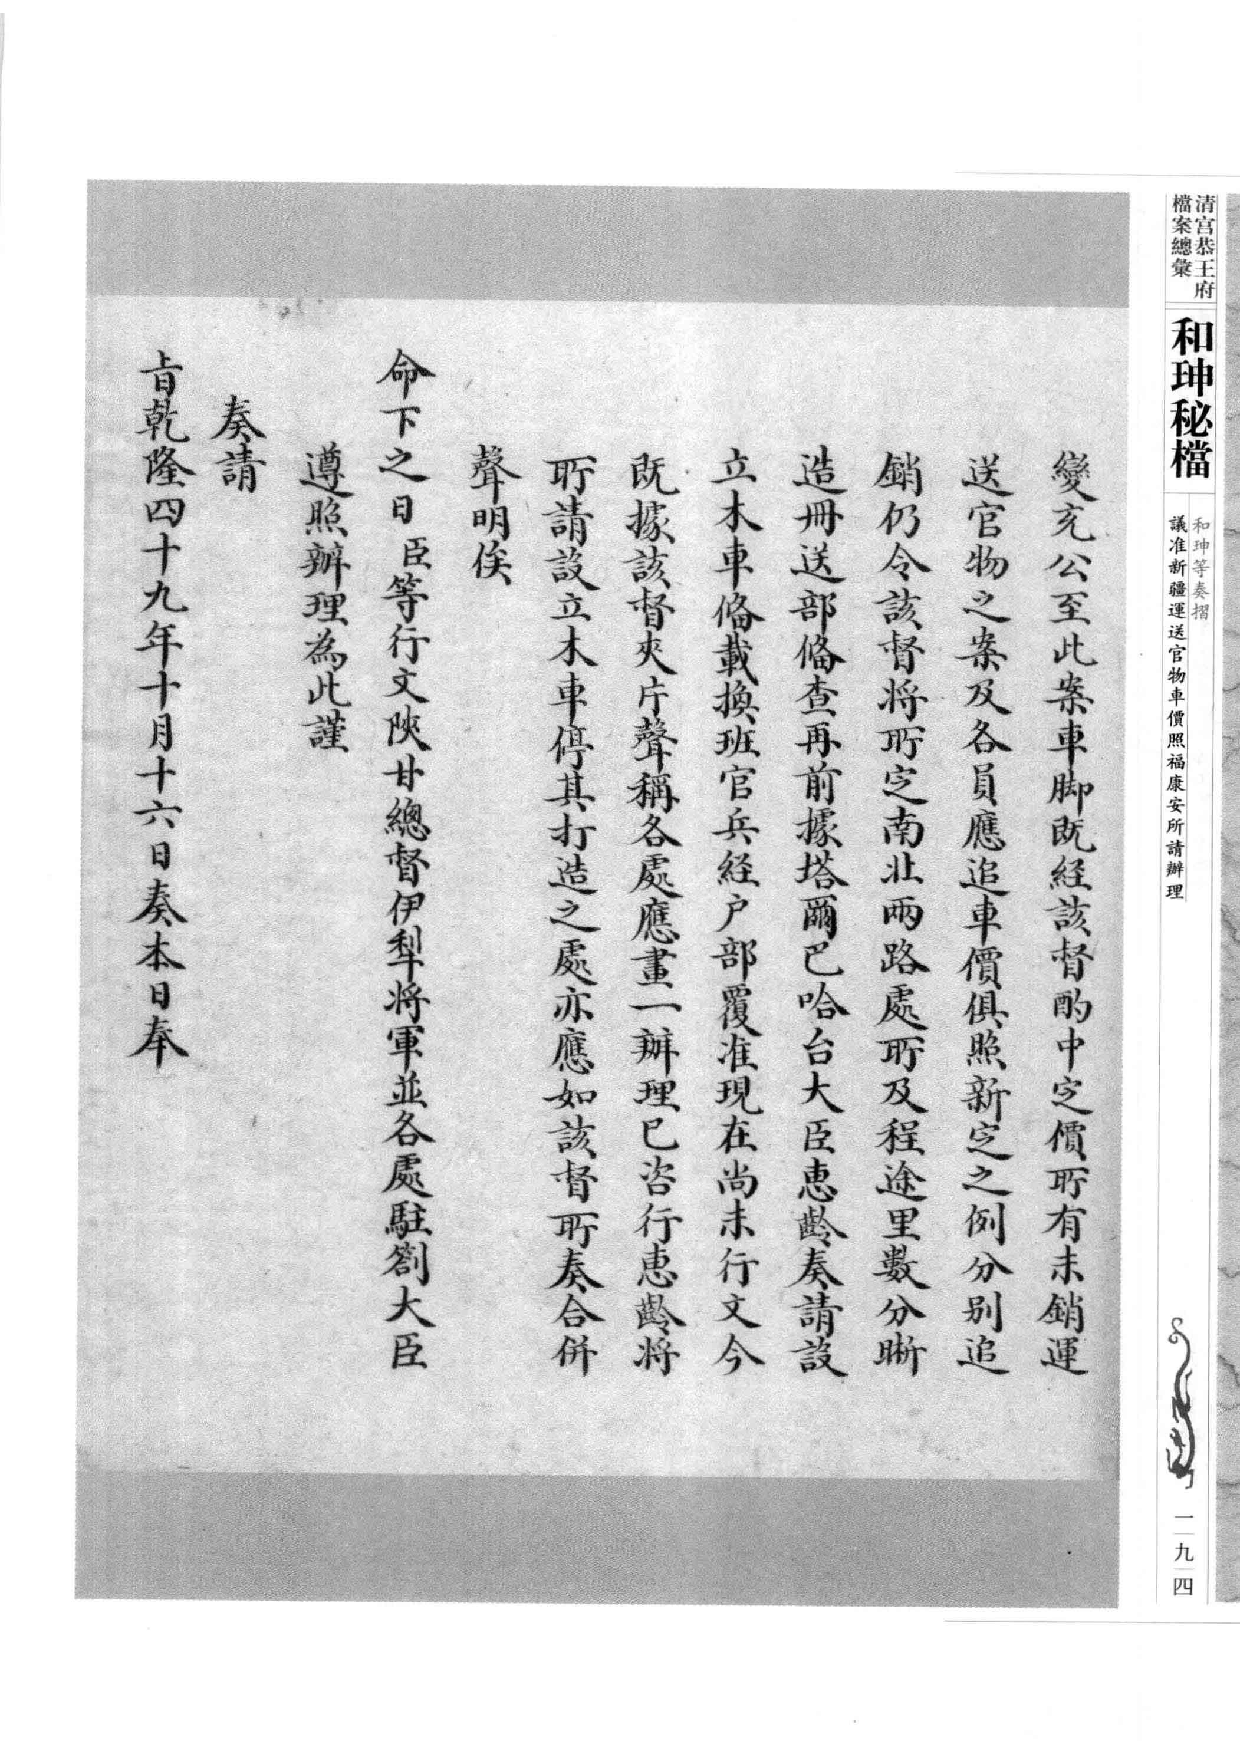 清宮恭王府
檔案總彙
和珅秘檔
和珅等奏摺
議准新疆運送官物車價照福康安所請辦理
一九四
變充公至此案車脚既経該督酌中定價所有未銷運
送官物之案及各員應追車價俱照新定之例分别追
銷仍令該督将所定南北兩路處所及程途里數分晰
造冊送部俻查再前據塔爾巴哈台大臣惠齡奏請設
立木車俻載換班官兵経户部覆准現在尚未行文今
既據該督夾片聲稱各處應畫一辦理已咨行惠齡将
所請設立木車停其打造之處亦應如該督所奏合併
聲明俟
命下之日臣等行文陝甘總督伊犁将軍並各處駐劄大臣
遵照辦理為此謹
奏請
旨乾隆四十九年十月十六日奏本日奉